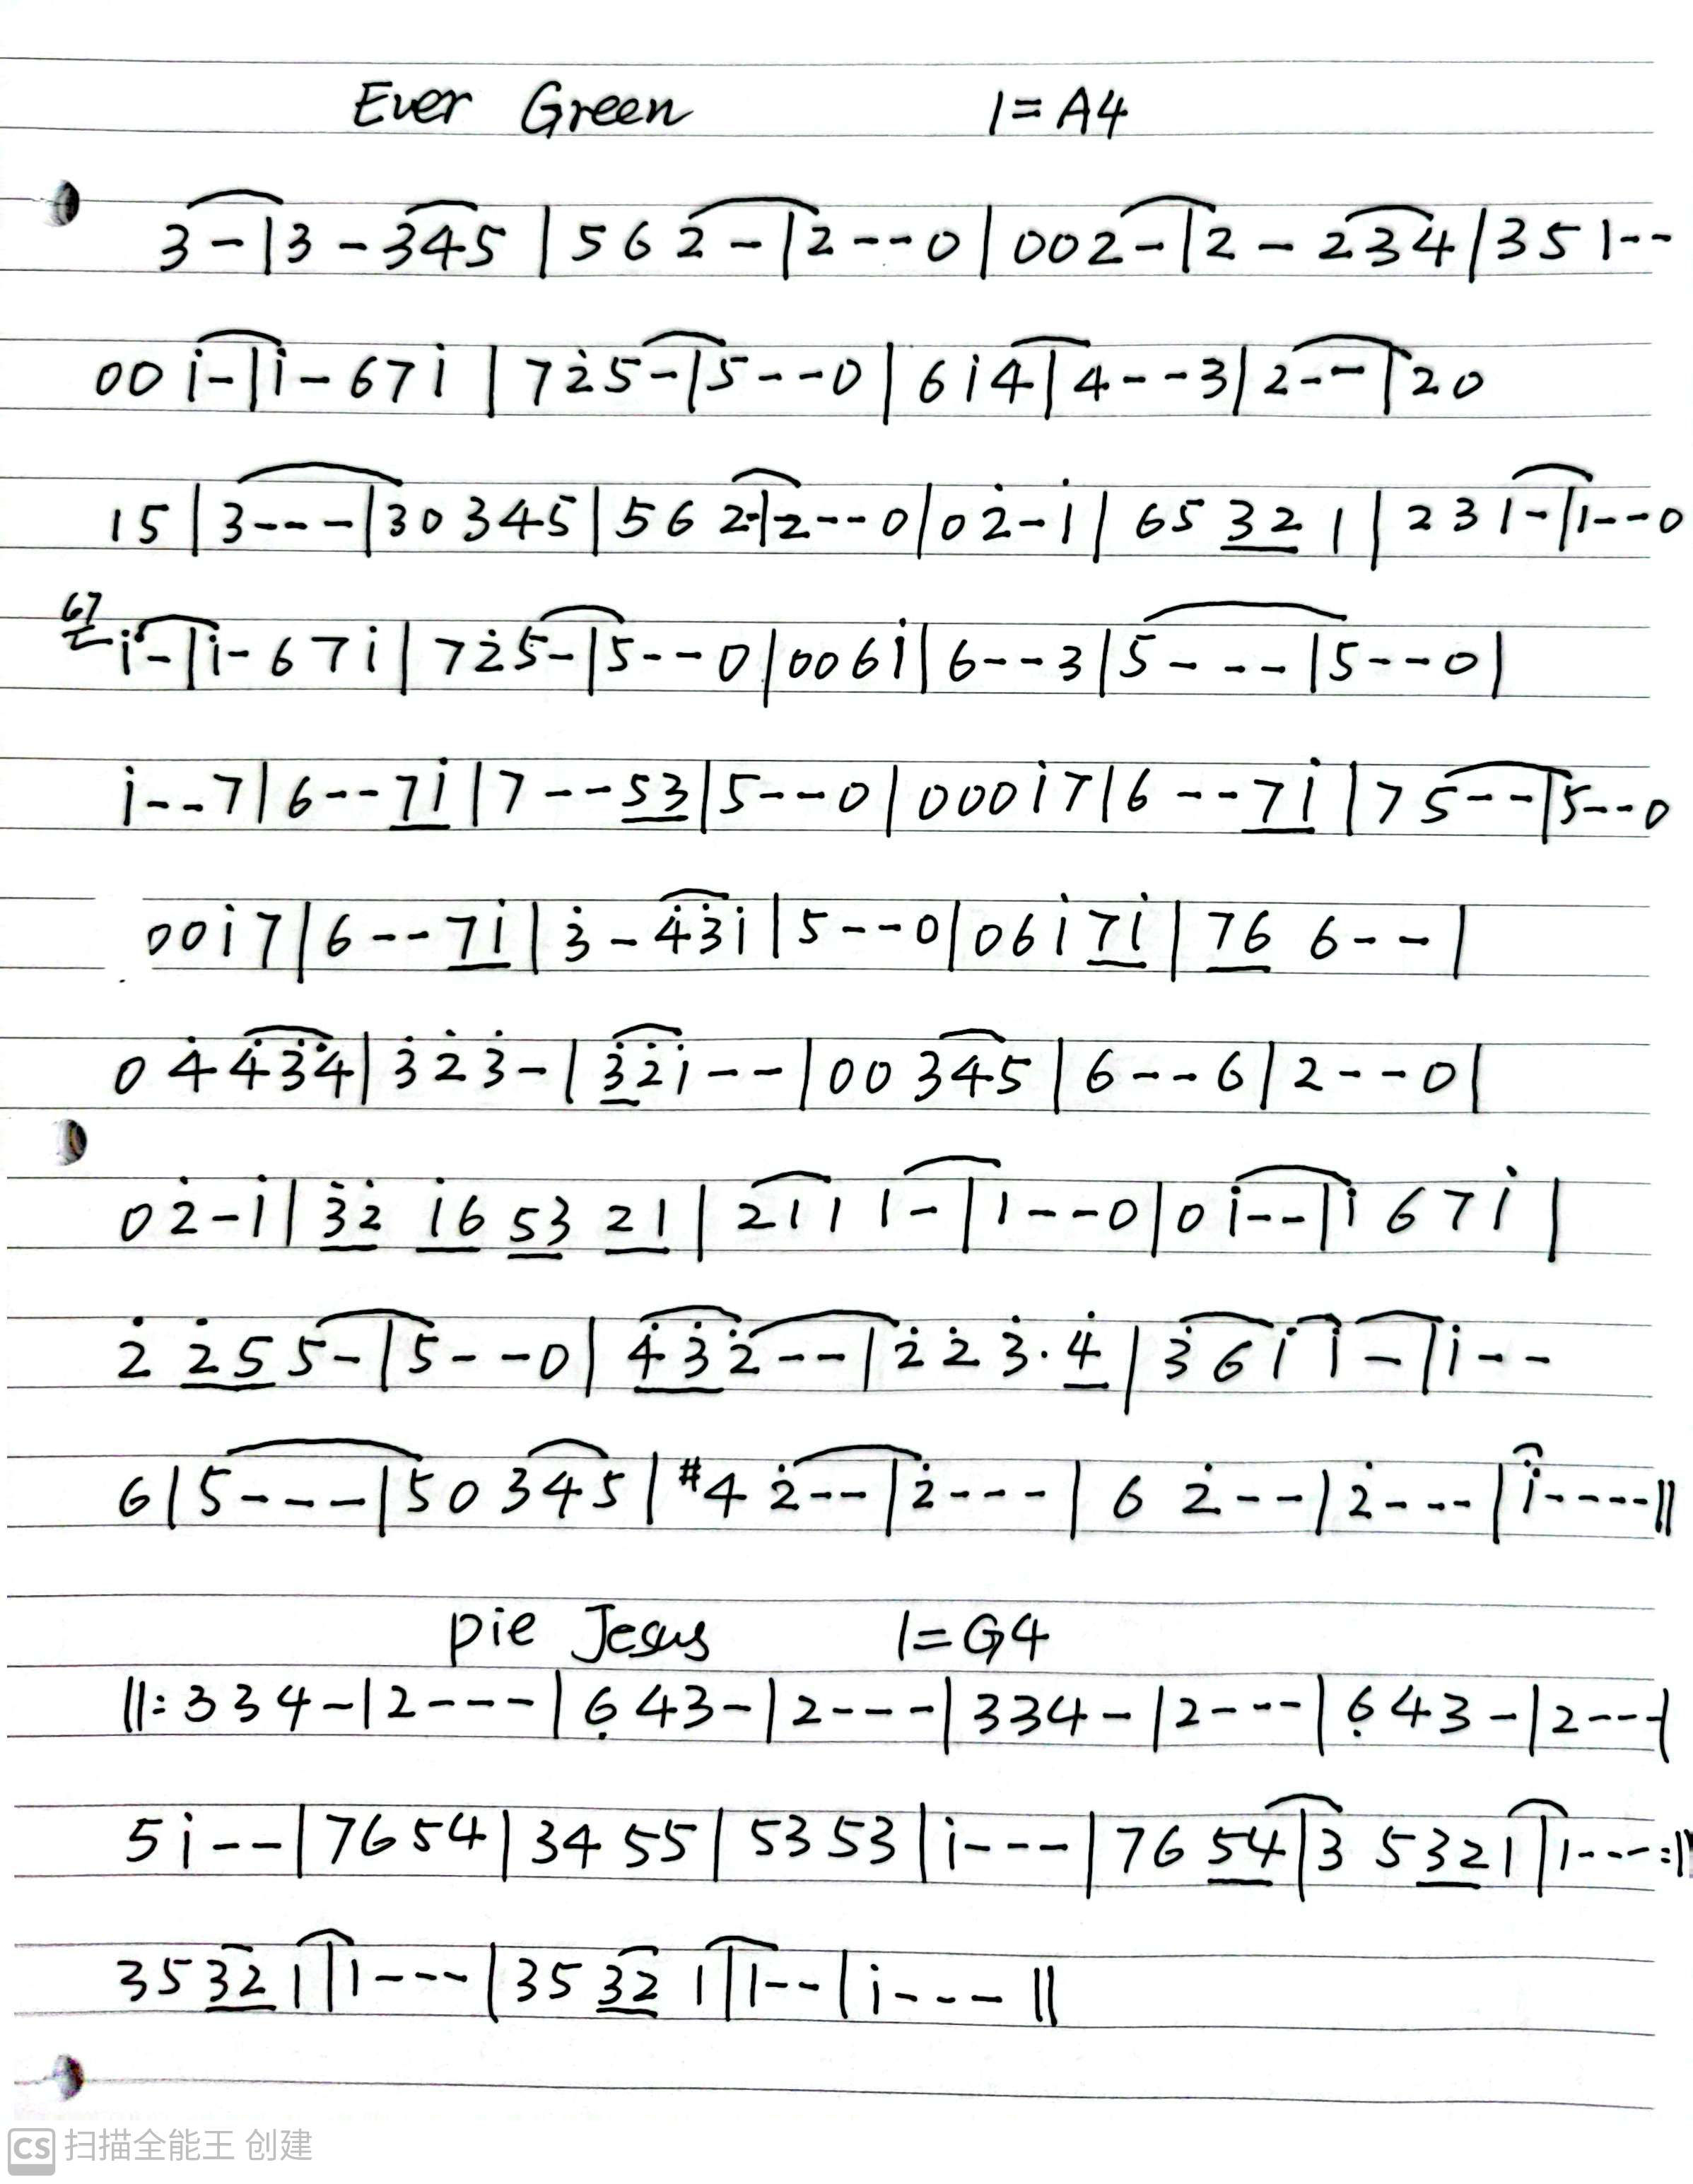 Ever Green 1=A4
3-|3-345|562-|2--0|002-|2-234|351--
00i̇-|i̇-67i̇|72̇5-|5---0|6i̇4|4--3|2--|20
15|3---|30345|562-|2--0|02̇-i̇|65321|231-|1--0
67 i̇-|i̇-67i̇|72̇5-|5--0|006i̇|6--3|5---|5--0|
i̇--7|6--7i̇|7--53|5--0|000i̇7|6--7i̇|75--|5--0
00i̇7|6--7i̇|3̇-4̇3̇i̇|5--0|06i̇7i̇|766--|
04̇4̇3̇4̇|3̇2̇3̇-|3̇2̇i̇--|00345|6--6|2--0|
02̇-i̇|3̇2̇ i̇6 53 21|2111-|1--0|0i̇--|i̇67i̇|
2̇2̇55-|5--0|4̇3̇2̇--|2̇2̇3̇·4̇|3̇6i̇i̇-|i̇--
6|5---|50345|#42̇--|2̇---|62̇--|2̇---|i̇----||
Pie Jesus 1=G4
||:334-|2---|6̣43-|2---|334-|2---|6̣43-|2---|
5i̇--|7654|3455|5353|i̇---|7654|35321|1---:||
35321|1---|35321|1--|i̇---||
CS 扫描全能王 创建